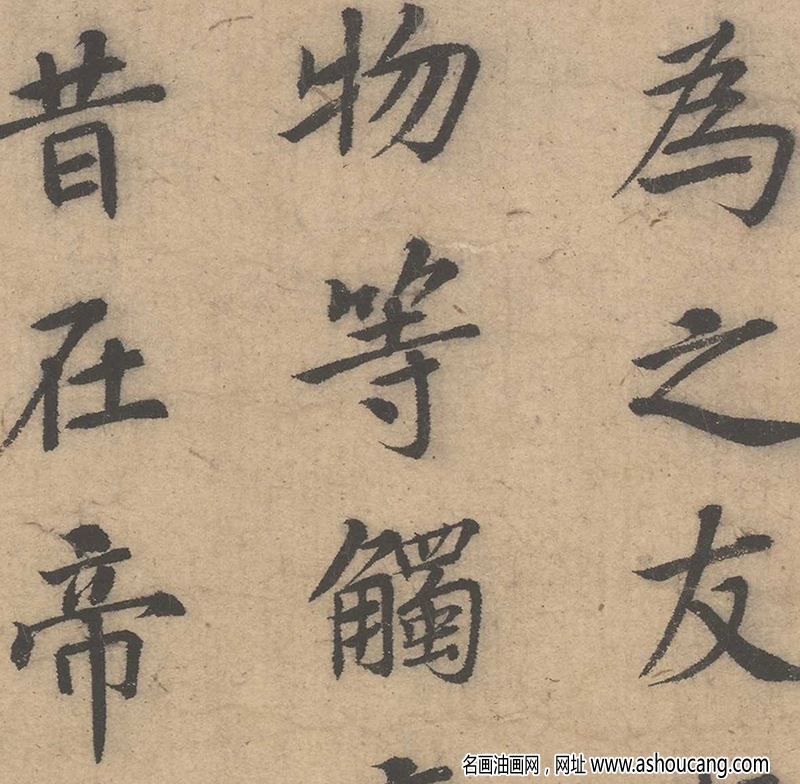 為之友
物等觸
昔在帝
名画油画网，网址 www.ashoucang.com